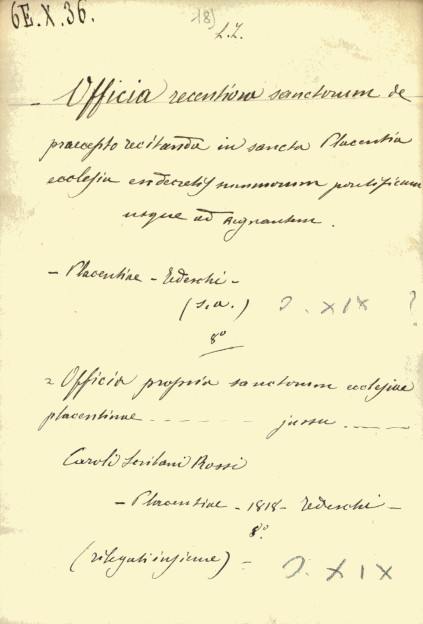 6E.X.36.
18)
L.L.
- Officia recentiora sanctorum de
praecepto recitanda in sancta Placentia
ecclesia ex decretis summorum pontificum
usque ad regnantem.
- Placentiae - Tedeschi -
(s.a.) S. XIX ?
8°
2 Officia propria sanctorum ecclesiae
placentinae - - - - jussu - - -
Caroli Scribani Rossi
- Placentiae - 1818 - Tedeschi -
8°.
(rilegati insieme) - S. XIX